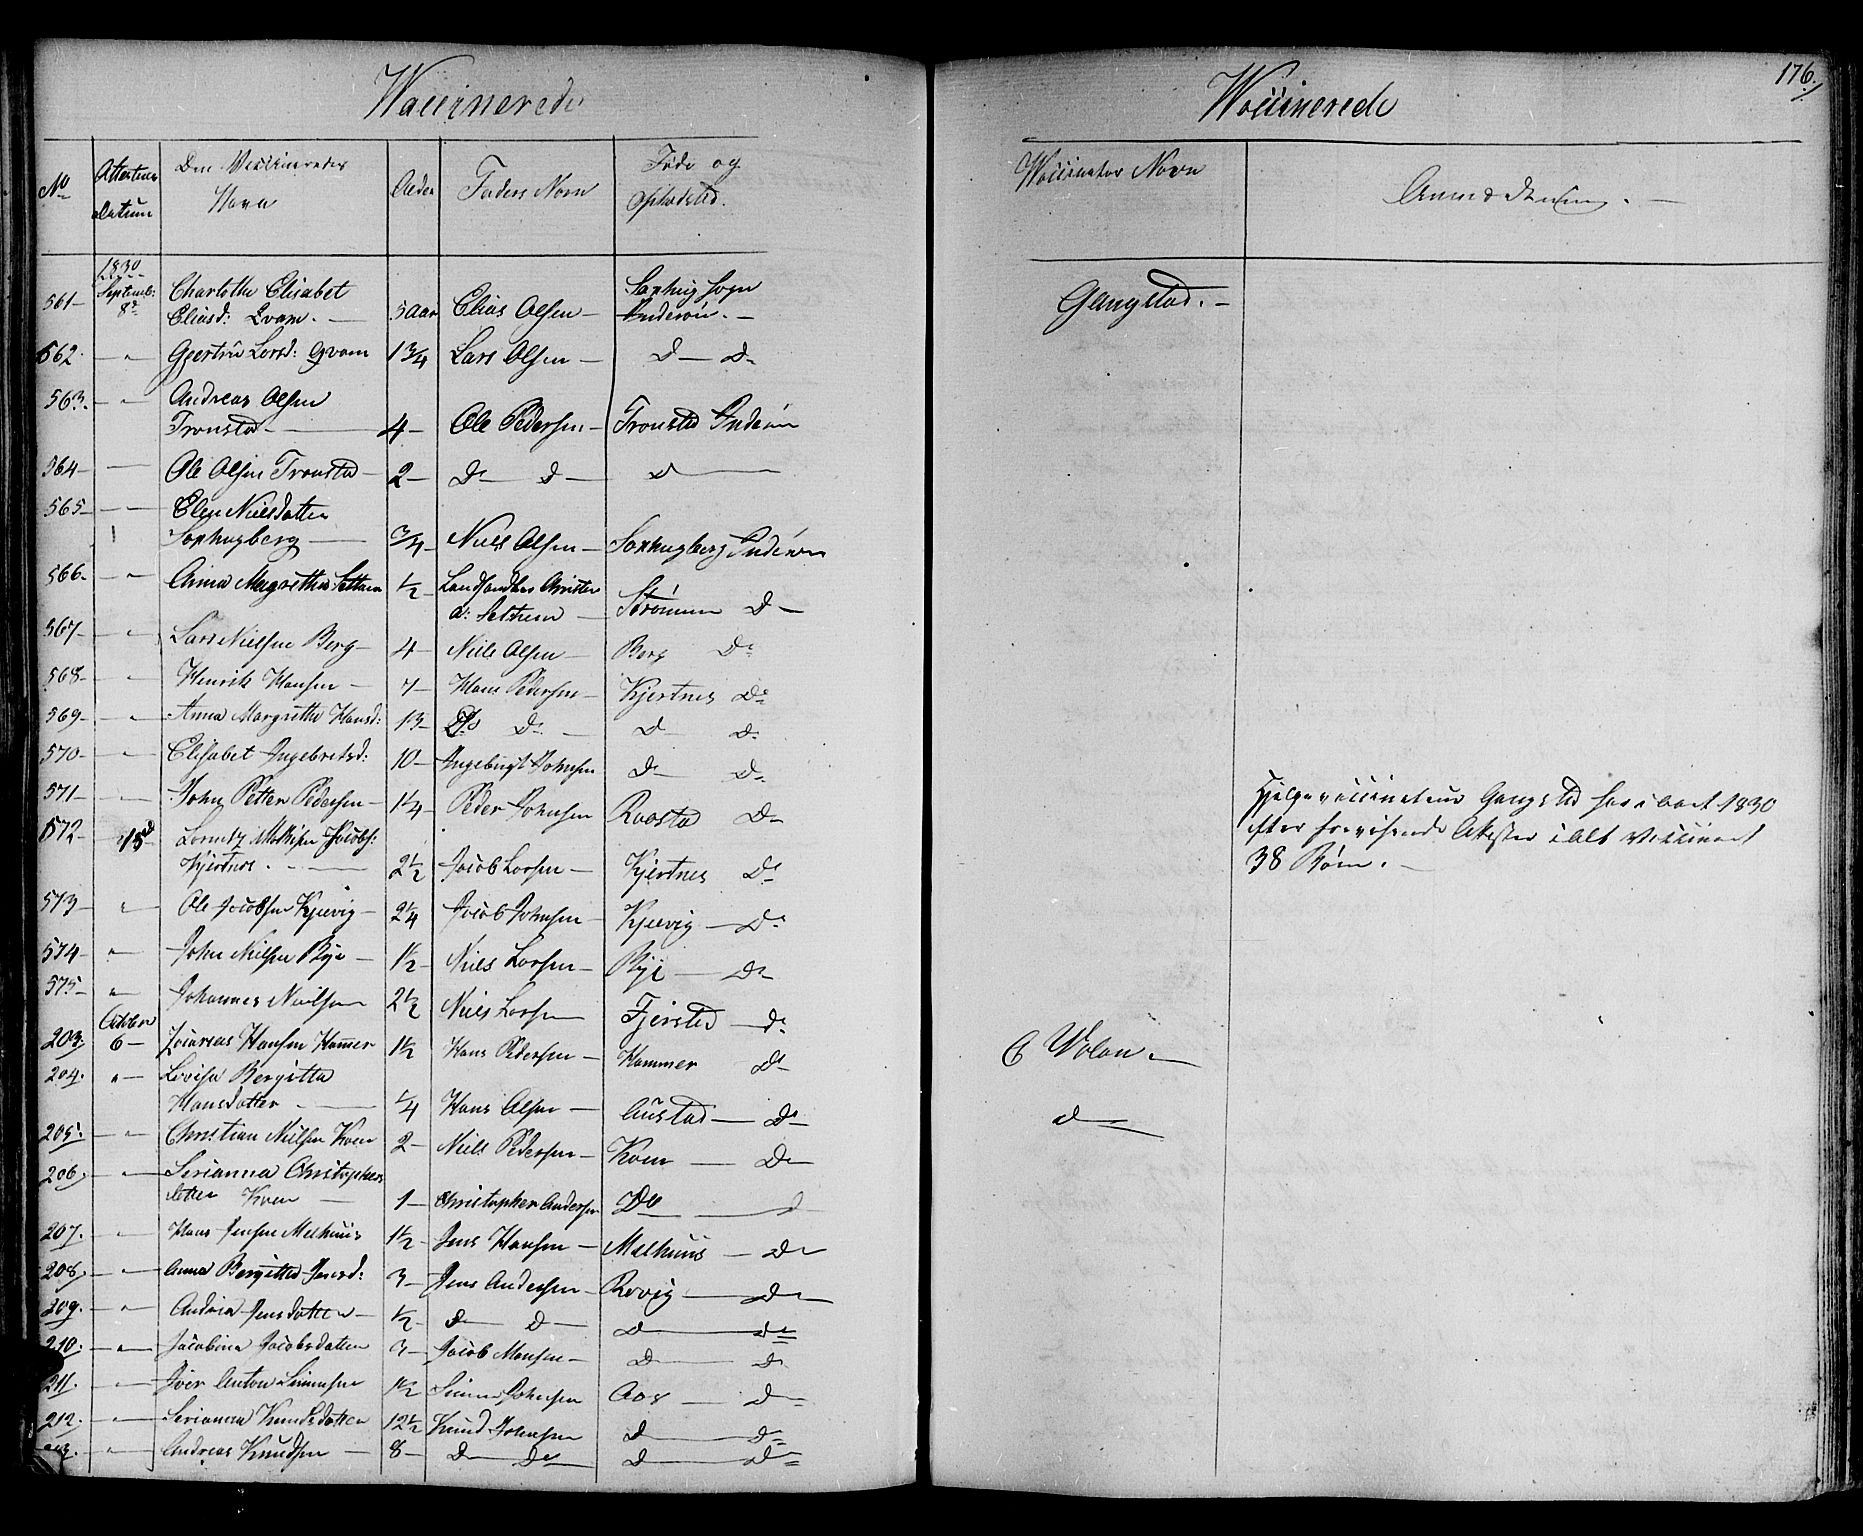 Waccinerede
No Attestens Datum Den Vaccineredes Navn Alder Faders Navn Føde og Opholdsted.
1830
561- Septemb: 8de Charlotha Elisabet
Eliasd: Qvam. - 5 Aar Elias Olsen - Saxhug Sogn Inderøn. -
562. - " - Gjertrud Larsd: Qvam 1 3/4 Lars Olsen - D - Do
563. - " - Andreas Olsen
Tronstad - 4 - Ole Pedersen - Tronstad Inderøn
564 - Ole Olsen Tronstad - 2 - Do D - D
565 - Elen Nielsdatter
Saxhugberg - 3/4 - Niels Olsen - Saxhugberg Inderøn
566. - " - Anna Margretha Settem 1/2 - Landhandler Christen
A: Settem - Strømmen D -
567 - " - Lars Nielsen Berg - 4 - Niels Olsen - Berg Do
568 - " - Henrik Hansen - 7 - Hans Pedersen - Kjertnes Do
569 - " - Anna Margretha Hansd: 13 - Do Do - D Do
570 - " - Elisabet Ingebretsd: 10 - Ingebrigt Johnsen D - Do
571 - John Petter Pedersen - 1 1/4 Peder Johnsen Raastad Do
572 - 15de Jacobs:
Kjertnes. - 2 1/2 Jacob Larsen - Kjertnes Do
573 - " Ole Jacobsen Kjervig - 2 1/4 Jacob Johnsen - Kjervig - Do
574 - " John Nielsen Rye - 1 1/2 - Niels Larsen - Rye - Do
575 - " Johannes Nielsen 2 1/2 Niels Larsen Fjerstad - Do
October
203. 6 - Zacarias Hansen Hammer 1 1/2 Hans Pedersen - Hammer Do
204. " - Lovisa Bergitta
Hansdatter - 1/4 Hans Olsen - Austad - Do
205. - " - Christian Nielsen Kven 2 - Niels Pedersen - Kven - Do
206. - " - Serianna Christophers
datter Kven - 1 - Christopher Andersen Do d
207. - " - Hans Jensen Melhuus 1 1/2 - Jens Hansen - Melhuus - Do
208. - " - Anna Bergitta Jensd: 3 - Jens Andersen - Rovig - Do
209. - " - Andrea Jensdatter - 1/2 - D - D - D - Do
210. - " - Jacobina Jacobsdatter 3 - Jacob Monsen - D - Do
211. - " - Iver Anton Simonsen 1 1/2 Simon Johnsen Aas - Do
212. - " - Serianna Knudsdatter 12 1/2 Knud Johnsen D - Do
213. - " - Andreas Knudsen - 8 - D - Do D - Do
176.
Waccinerede
Waccinator Navn Anmærkning. -
Gangstad. -
Hjelpevaccinateur Gangstad har i Aaret 1830
efter forevisende Attester i Alt vaccineret
38 Børn. -
Wolan. -
d -